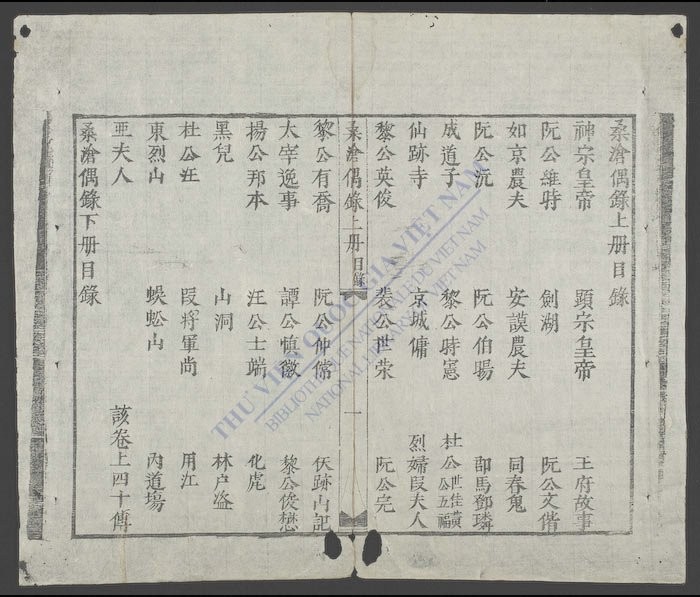 桑滄偶錄上册目錄
神宗皇帝 顕宗皇帝 王府故事
阮公維時 劍湖 阮公文偕
如京農夫 安謨農夫 同春鬼
阮公沆 阮公伯暘 駙馬鄧璘
成道子 黎公時憲 杜公世佳黃公五福
仙跡寺 京城傭 烈婦叚夫人
黎公英俊 裴公世荣 阮公完
桑滄偶錄上册目錄 一
黎公有喬 阮公仲常 佚跡山記
太宰逸事 譚公慎徽 黎公俊懋
揚公邦本 汪公士端 化虎
黑兒 山洞 林户盗
杜公汪 叚將軍尚 用江
東烈山 蜈蚣山 內道場
亚夫人 該卷上四十傳
桑滄偶錄下册目錄
THƯ VIỆN QUỐC GIA VIỆT NAM
BIBLIOTHÈQUE NATIONALE DU VIETNAM
NATIONAL LIBRARY OF VIETNAM